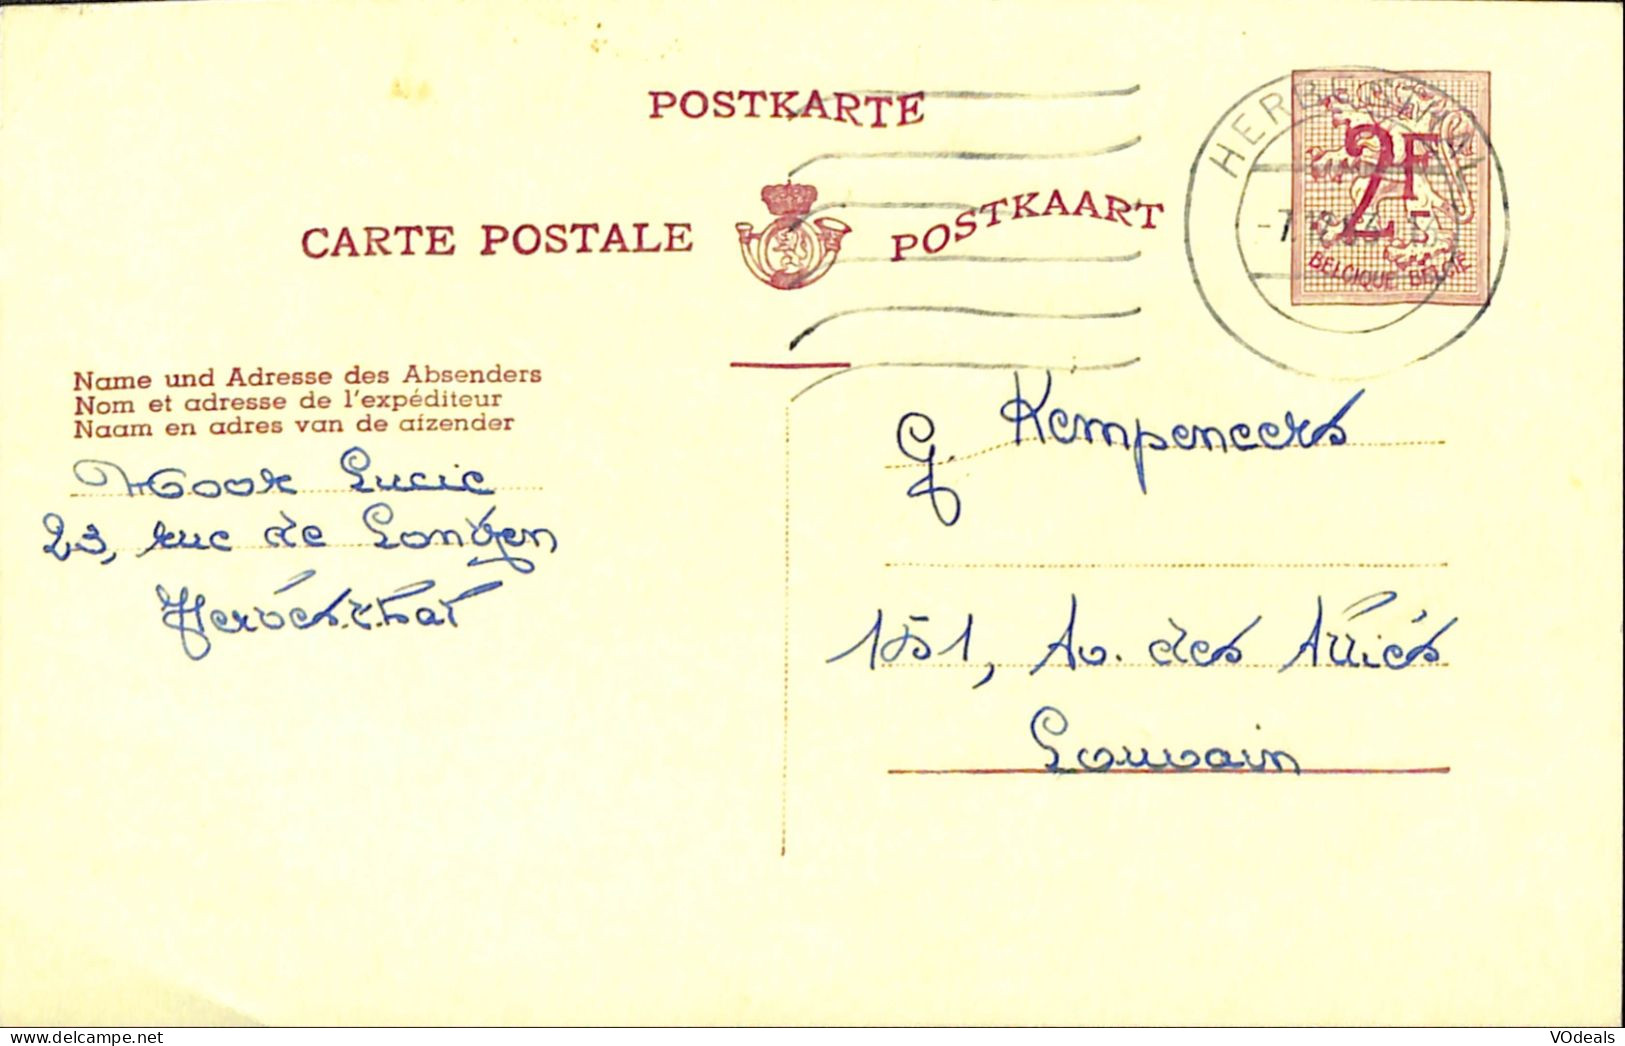 POSTKARTE
CARTE POSTALE
POSTKAART
HERBESTHAL
2F
BELGIQUE BELGIË
Name und Adresse des Absenders
Nom et adresse de l'expéditeur
Naam en adres van de afzender
Lucie
23, rue de Lontzen
Herbesthal
G. Kempeneers
151, Av. des Alliés
Louvain
VOdeals